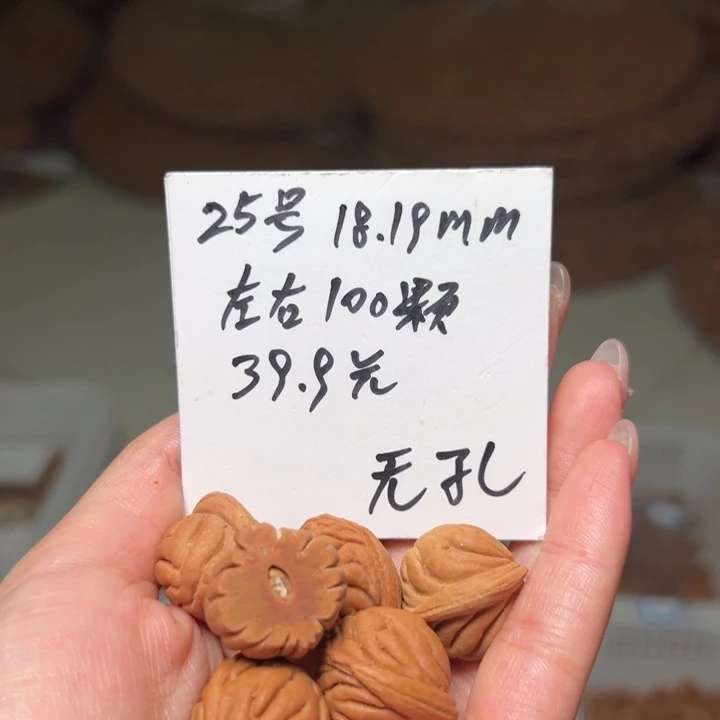 25号 18.19mm
左右100颗
39.9元
无孔